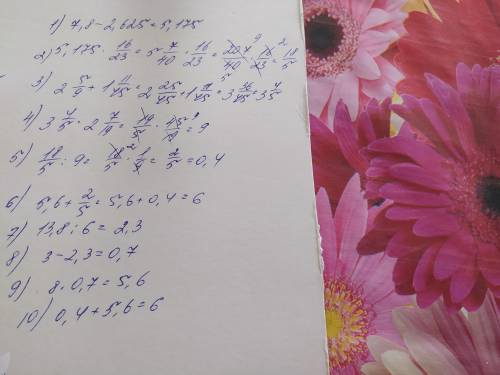 1) 7,8-2,625=5,175
2) 5,175 · 16/23 = 5 7/40 · 16/23 = 207/40 · 16/23 = 18/5
3) 2 5/9 + 1 11/45 = 2 25/45 + 1 11/45 = 3 36/45 = 3 4/5
4) 3 4/5 · 2 7/19 = 19/5 · 45/19 = 9
5) 18/5 : 9 = 18/5 · 1/9 = 2/5 = 0,4
6) 5,6 + 2/5 = 5,6 + 0,4 = 6
7) 13,8 : 6 = 2,3
8) 3 - 2,3 = 0,7
9) 8 · 0,7 = 5,6
10) 0,4 + 5,6 = 6